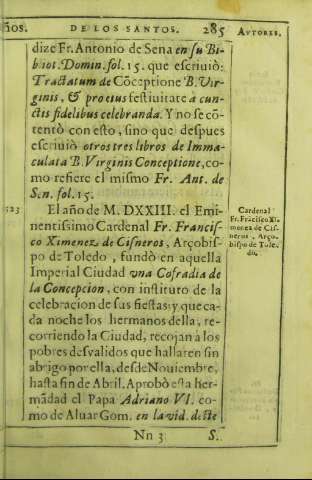 ños.
DE LOS SANTOS.
285
AVTORES.
dize Fr. Antonio de Sena en su Bi-
bliot. Domin. fol. 15. que escriuiò:
Tractatum de Cõceptione B. Vir-
ginis, & pro eius festiuitate à cun-
ctis fidelibus celebranda. Y no se cõ-
tentò con esto, sino que despues
escriuiò otros tres libros de Imma-
culata B. Virginis Conceptione, co-
mo refiere el mismo Fr. Ant. de
Sen. fol. 15.
523
El año de M. DXXIII. el Emi-
nentissimo Cardenal Fr. Francis-
co Ximenez de Cisneros, Arçobis-
po de Toledo, fundò en aquella
Imperial Ciudad vna Cofradia de
la Concepcion, con instituto de la
celebracion de sus fiestas: y que ca-
da noche los hermanos della, re-
corriendo la Ciudad, recojan à los
pobres desvalidos que hallaren sin
abrigo por ella, desde Nouiembre,
hasta fin de Abril. Aprobò esta her-
mãdad el Papa Adriano VI. co-
mo de Aluar Gom. en la vid. deste
Cardenal
Fr. Frãcisco Xi-
menez de Cis-
neros, Arço-
bispo de Tole-
do.
Nn 3
S.